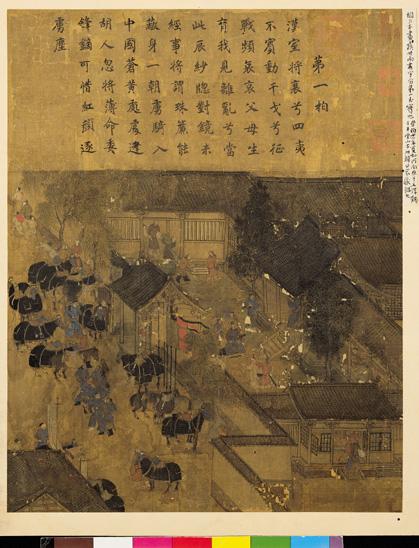 第一拍
漢室將衰兮四夷
不賓動干戈兮征
戰頻哀哀父母生
育我見離亂兮當
此辰紗牕對鏡未
經事將謂珠簾能
蔽身一朝虜騎入
中國蒼黃處處逢
胡人忽將薄命委
鋒鏑可惜紅顏逐
虜塵